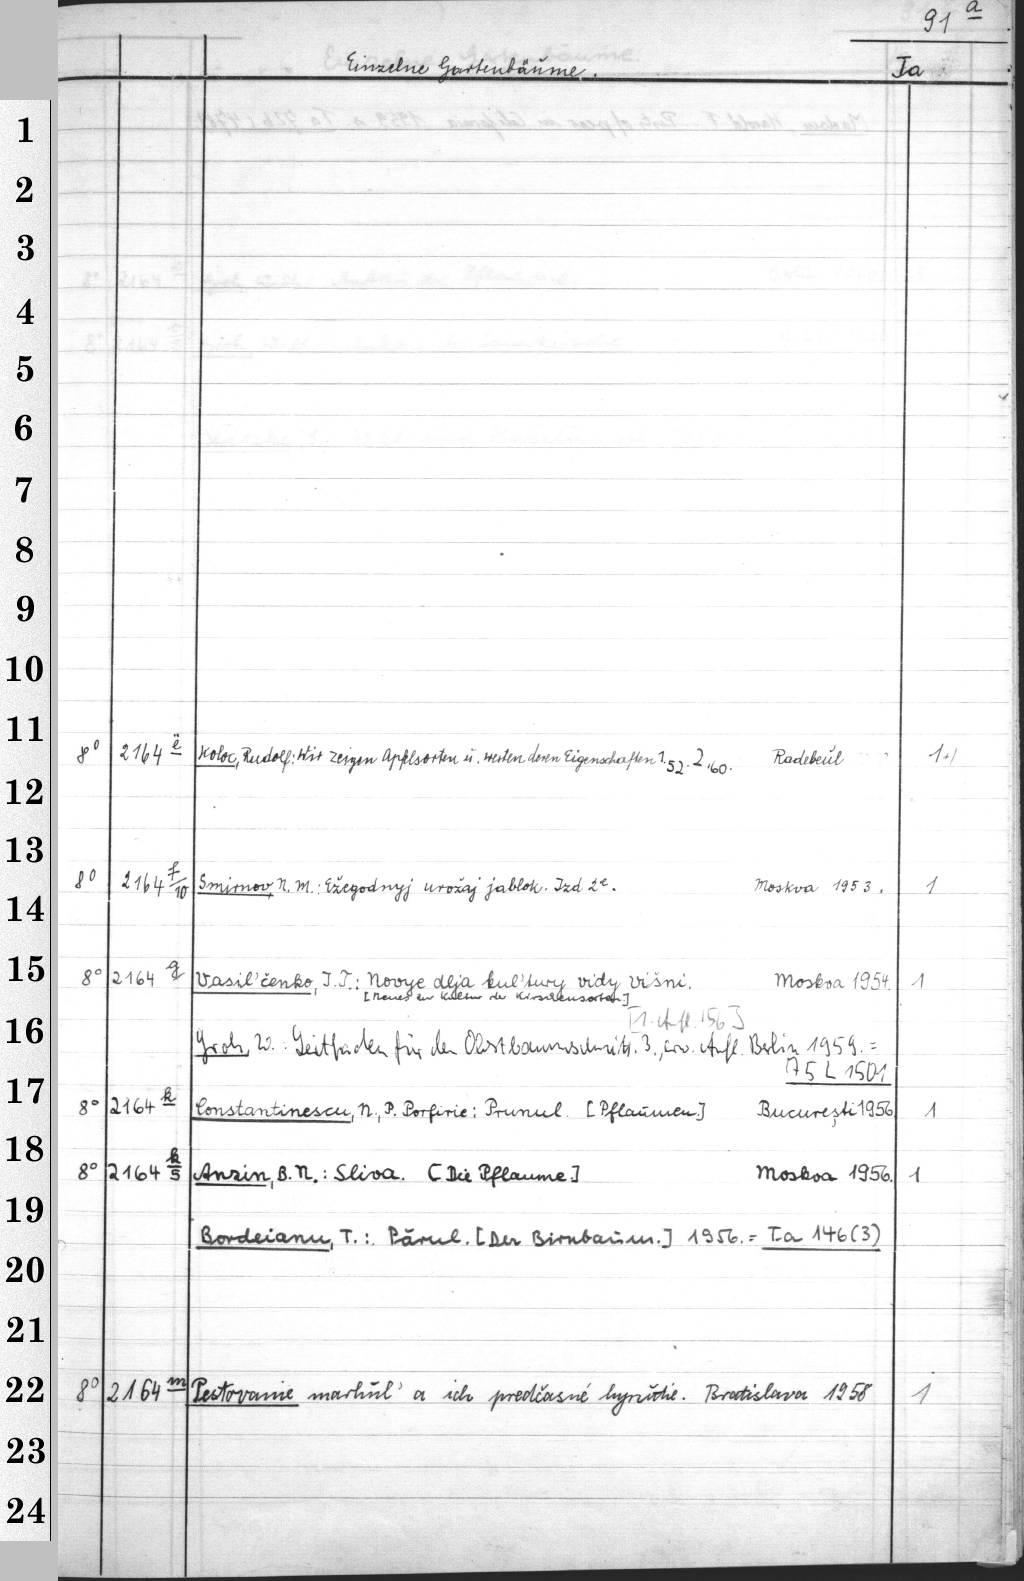 91 a
Einzelne Gartenbäume. Ta
1
2
3
4
5
6
7
8
9
10
11
8° 2164 ë Koloc, Rudolf: Wir zeigen Apfelsorten u. werten deren Eigenschaften 1.52. 2.60. Radebeul 1+1
12
13
8° 2164 f/10 Smirnov, N. M.: Ežegodnyj urožaj jablok. Izd 2e. Moskva 1953. 1
14
15
8° 2164 g Vasil'čenko, I. T.: Novye dlja kul'tury vidy višni. Moskva 1954. 1
[Neues zur Kultur der Kirschensorten]
[1. Aufl. '56]
16
Groh, W.: Leitfaden für den Obstbaumschnitt. 3., erw. Aufl. Berlin 1959. =
A 5 L 1501
17
8° 2164 k Constantinescu, N., P. Porfirie: Prunul. [Pflaumen] București 1956 1
18
8° 2164 k/5 Anzin, B. N.: Sliva. [Die Pflaume] Moskva 1956. 1
19
Bordeianu, T.: Părul. [Der Birnbaum.] 1956. = Ta 146 (3)
20
21
22
8° 2164 m Pestovanie marhúl' a ich predčasné hynutie. Bratislava 1958 1
23
24